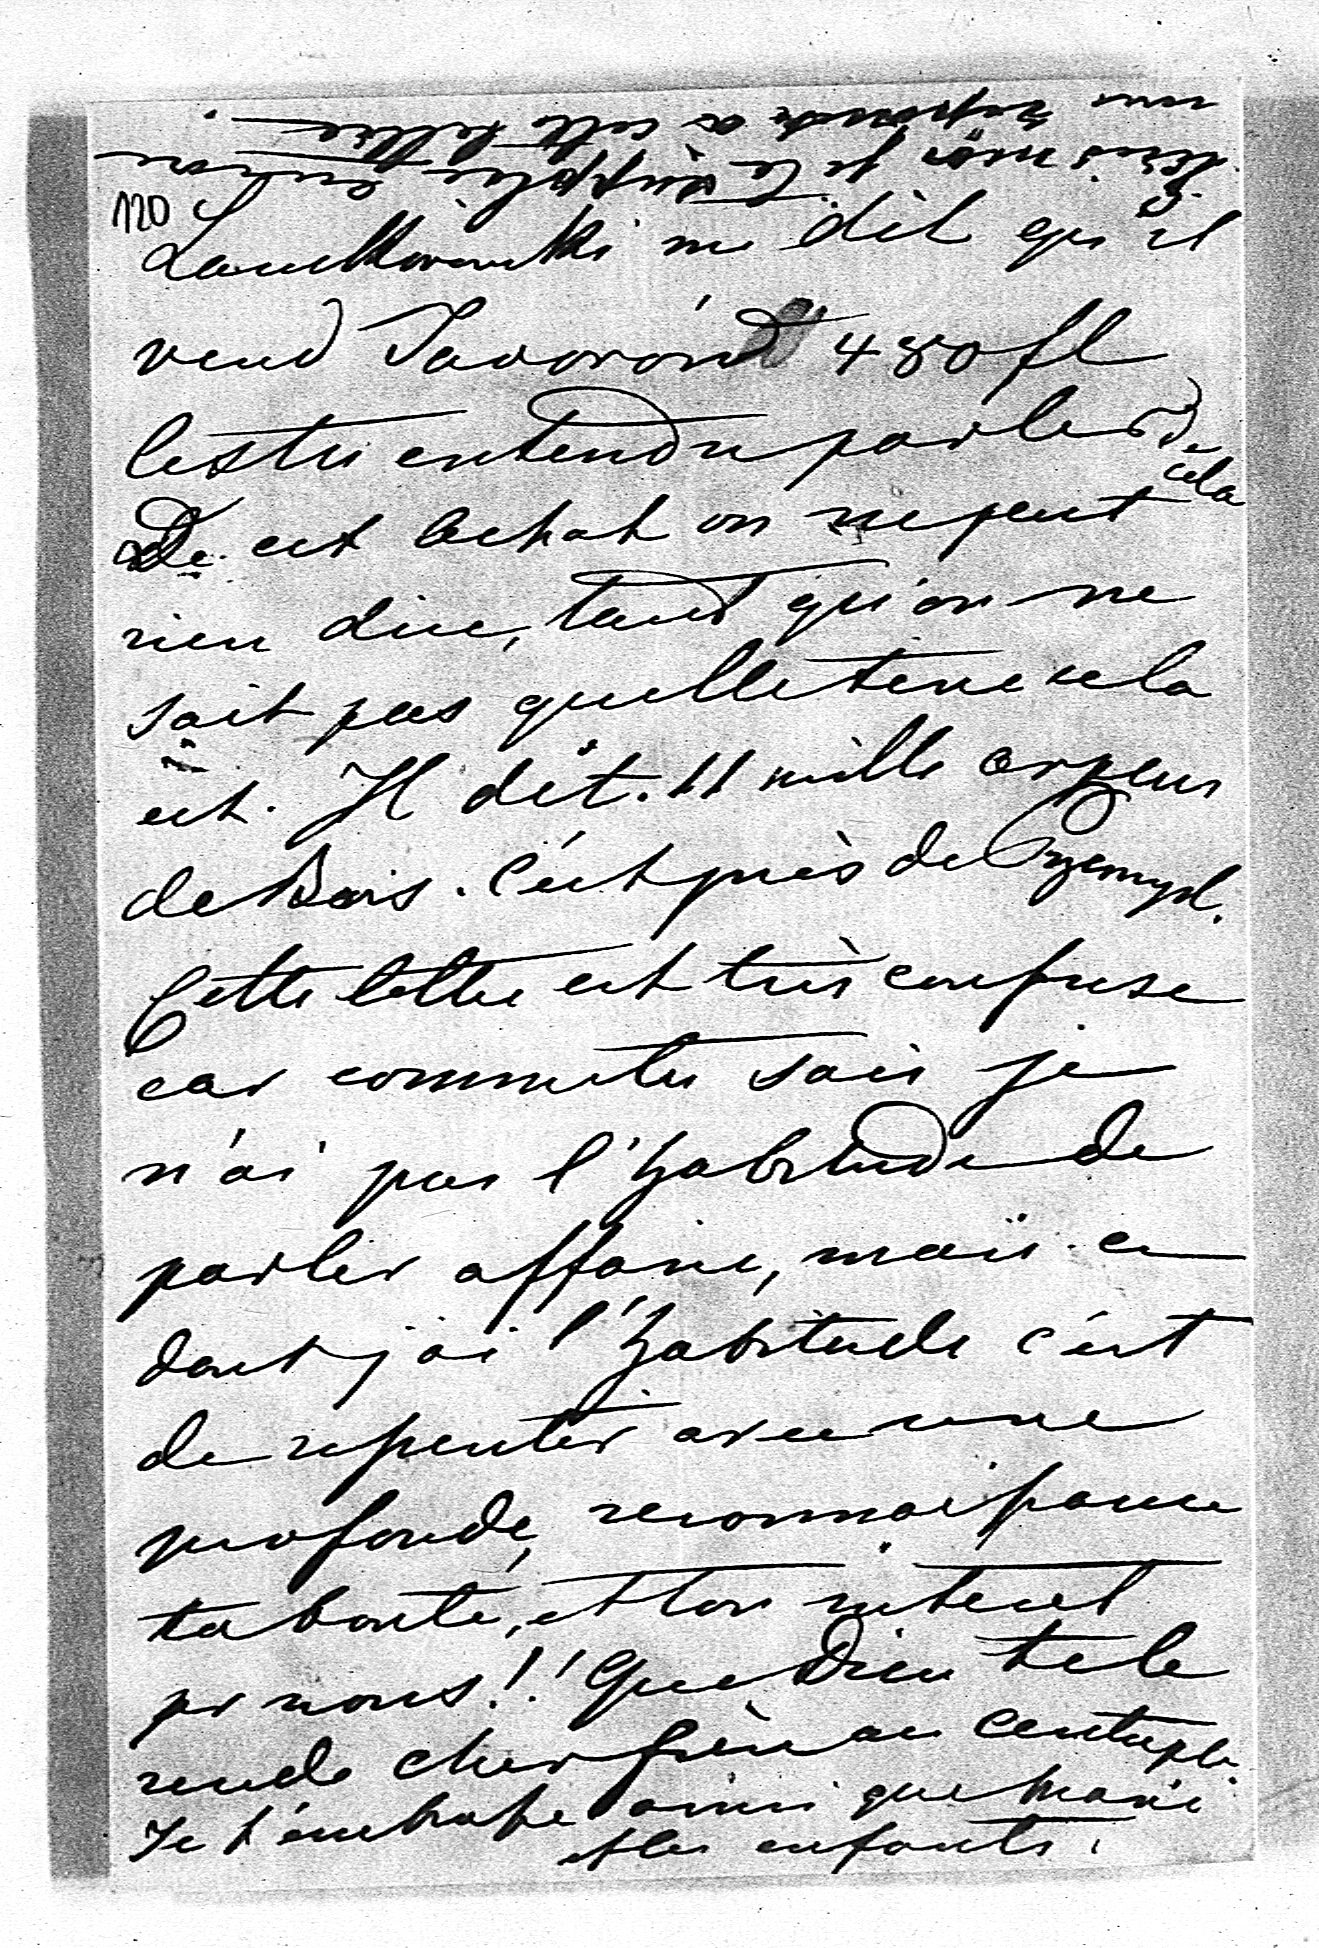 Ecris moi je te supplie encore
une reponse à cette lettre.
120
Lanckoronski me dit qu'il
vend Javorów 480 fl
les tu entendu parler de
cela
De cet achat on ne peut
rien dire, tant qu'on ne
sait pas quelle terre cela
est. Il dit. 11 mille arpens
de Bois. C'est près de Przemysl.
Cette lettre est très confuse
car comme tu sais je
n'ai pas l'habitude de
parler affaire, mais ce
dont j'ai l'habitude c'est
de repenter avec une
profonde, reconnaissance
ta bonté, et ton interet
pr nous!! Que Dieu te le
rende cher frère au centuple.
Je t'embrasse ainsi que Marie
et les enfants.